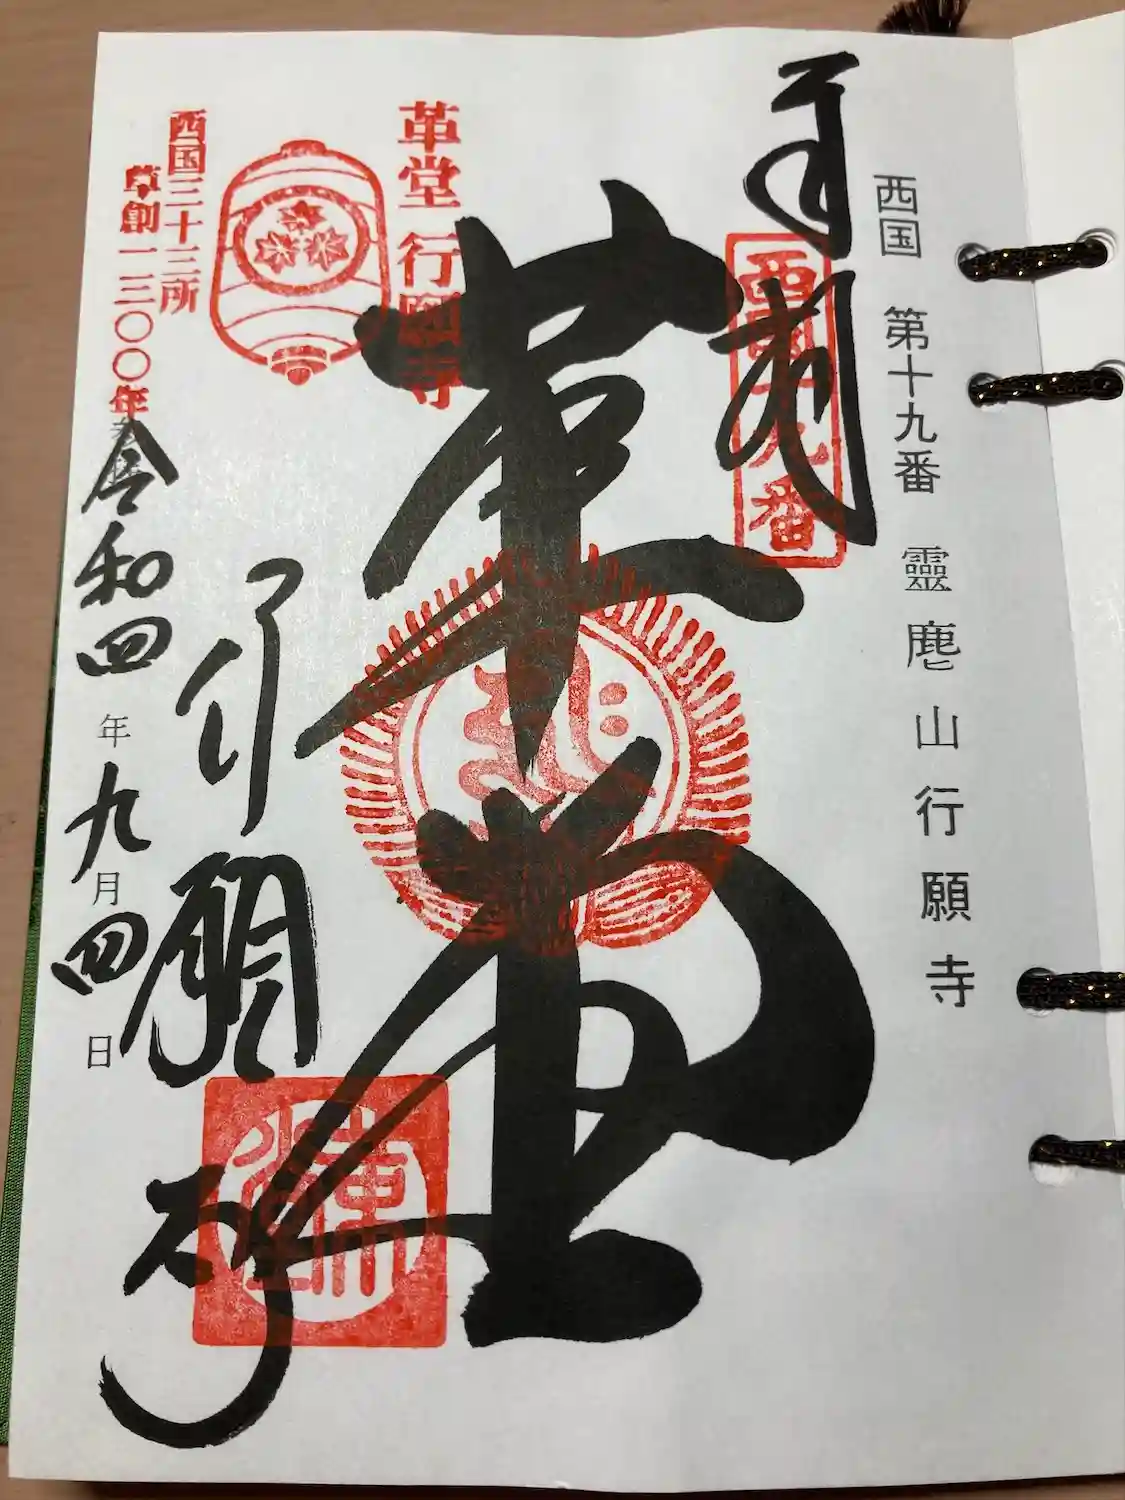 西国 第十九番 靈麀山行願寺
奉拝
西国十九番
革堂
革堂 行願寺
行願寺
西国三十三所
草創一三〇〇年
令和四年九月四日